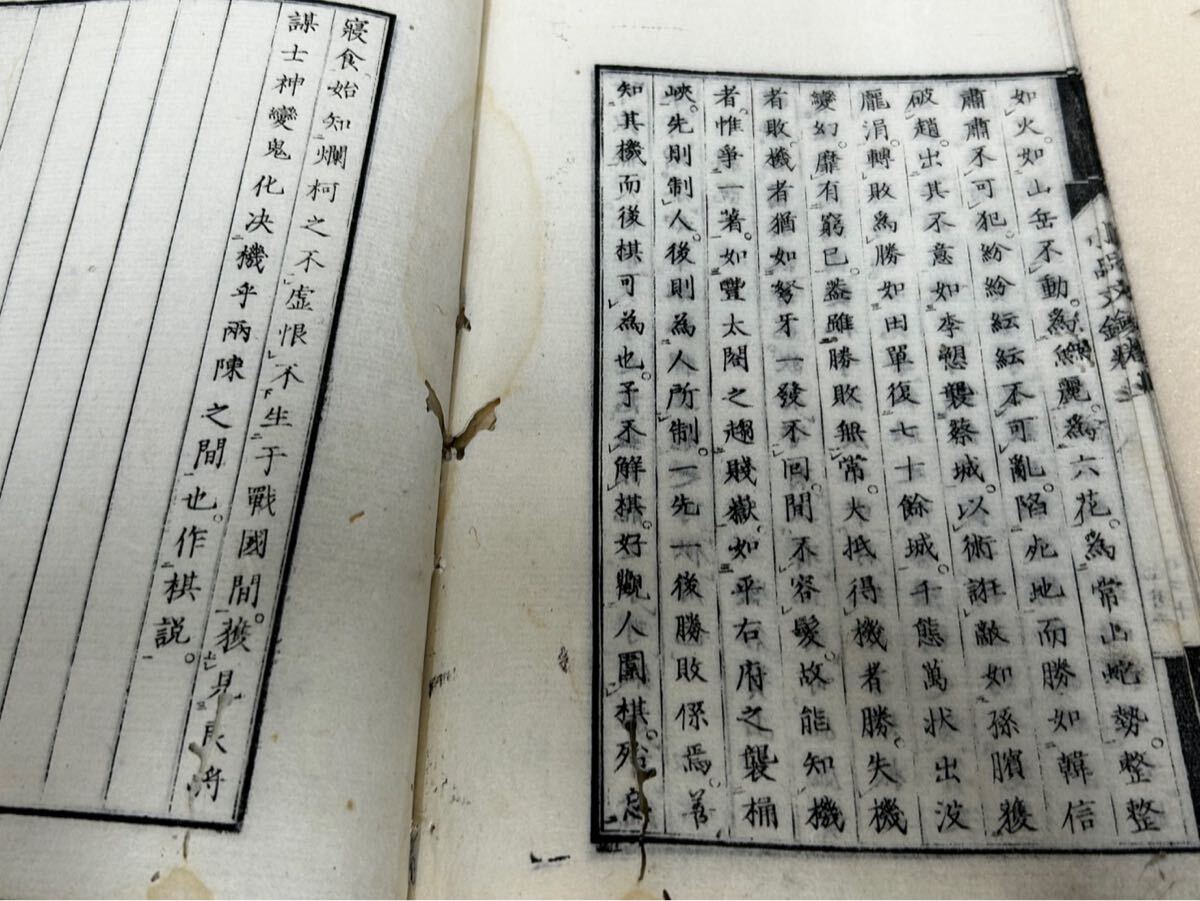 小品文鈔
如火。如山岳不動。為麗。為六花。為常山蛇勢。整整
肅肅不可犯。紛紛紜紜不可亂。陷死地而勝如韓信
破趙。出其不意如李愬襲蔡城。以術誑敵如孫臏獲
龐涓。轉敗為勝如田單復七十餘城。千態萬狀出没
變幻。靡有窮已。蓋雖勝敗無常。大抵得機者勝。失機
者敗。機者猶如弩牙一發不回。間不容髮。故能知機
者。惟爭一著。如豐太閤之趨賤嶽。如平右府之襲桶
峽。先則制人。後則為人所制。一先一後勝敗係焉。善
知其機而後棋可為也。予不解棋。好觀人圍棋。殆忘
寢食始知爛柯之不虛恨不生于戰國間。獲見良將
謀士神變鬼化决機乎兩陳之間也。作棋説。